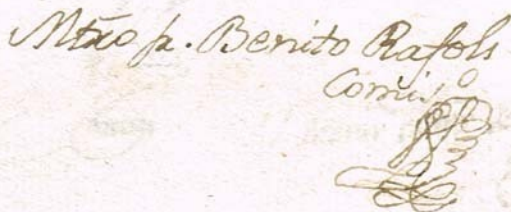 Mtro fr. Benito Rafols
Comis.o